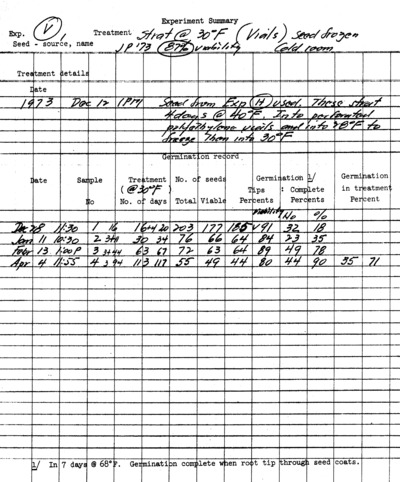 Experiment Summary
Exp. V, Treatment Strat @ 30°F (Vials) Seed frozen
Seed - source, name JP '73 87% viability Cold room
Treatment details
Date
1973 Dec 12 1PM Seed from Exp H used. These strat
4 days @ 40°F. Into perforated
polyethylene vials and into 28°F to
freeze then into 30°F
Germination record
Date Sample Treatment No. of seeds Germination 1/ Germination
(@ 30°F) Tips : Complete in treatment
No No. of days Total Viable Percents Percents Percent
Viability No %
Dec 28 11:30 1 16 16+4 20 203 177 185 V91 32 18
Jan 11 10:30 2 30 34 76 66 64 84 23 35
Febr 13 1:00P 3 63 67 72 63 64 89 49 78
Apr 4 11:55 4 113 117 55 49 44 80 44 90 35 71
1/ In 7 days @ 68°F. Germination complete when root tip through seed coats.